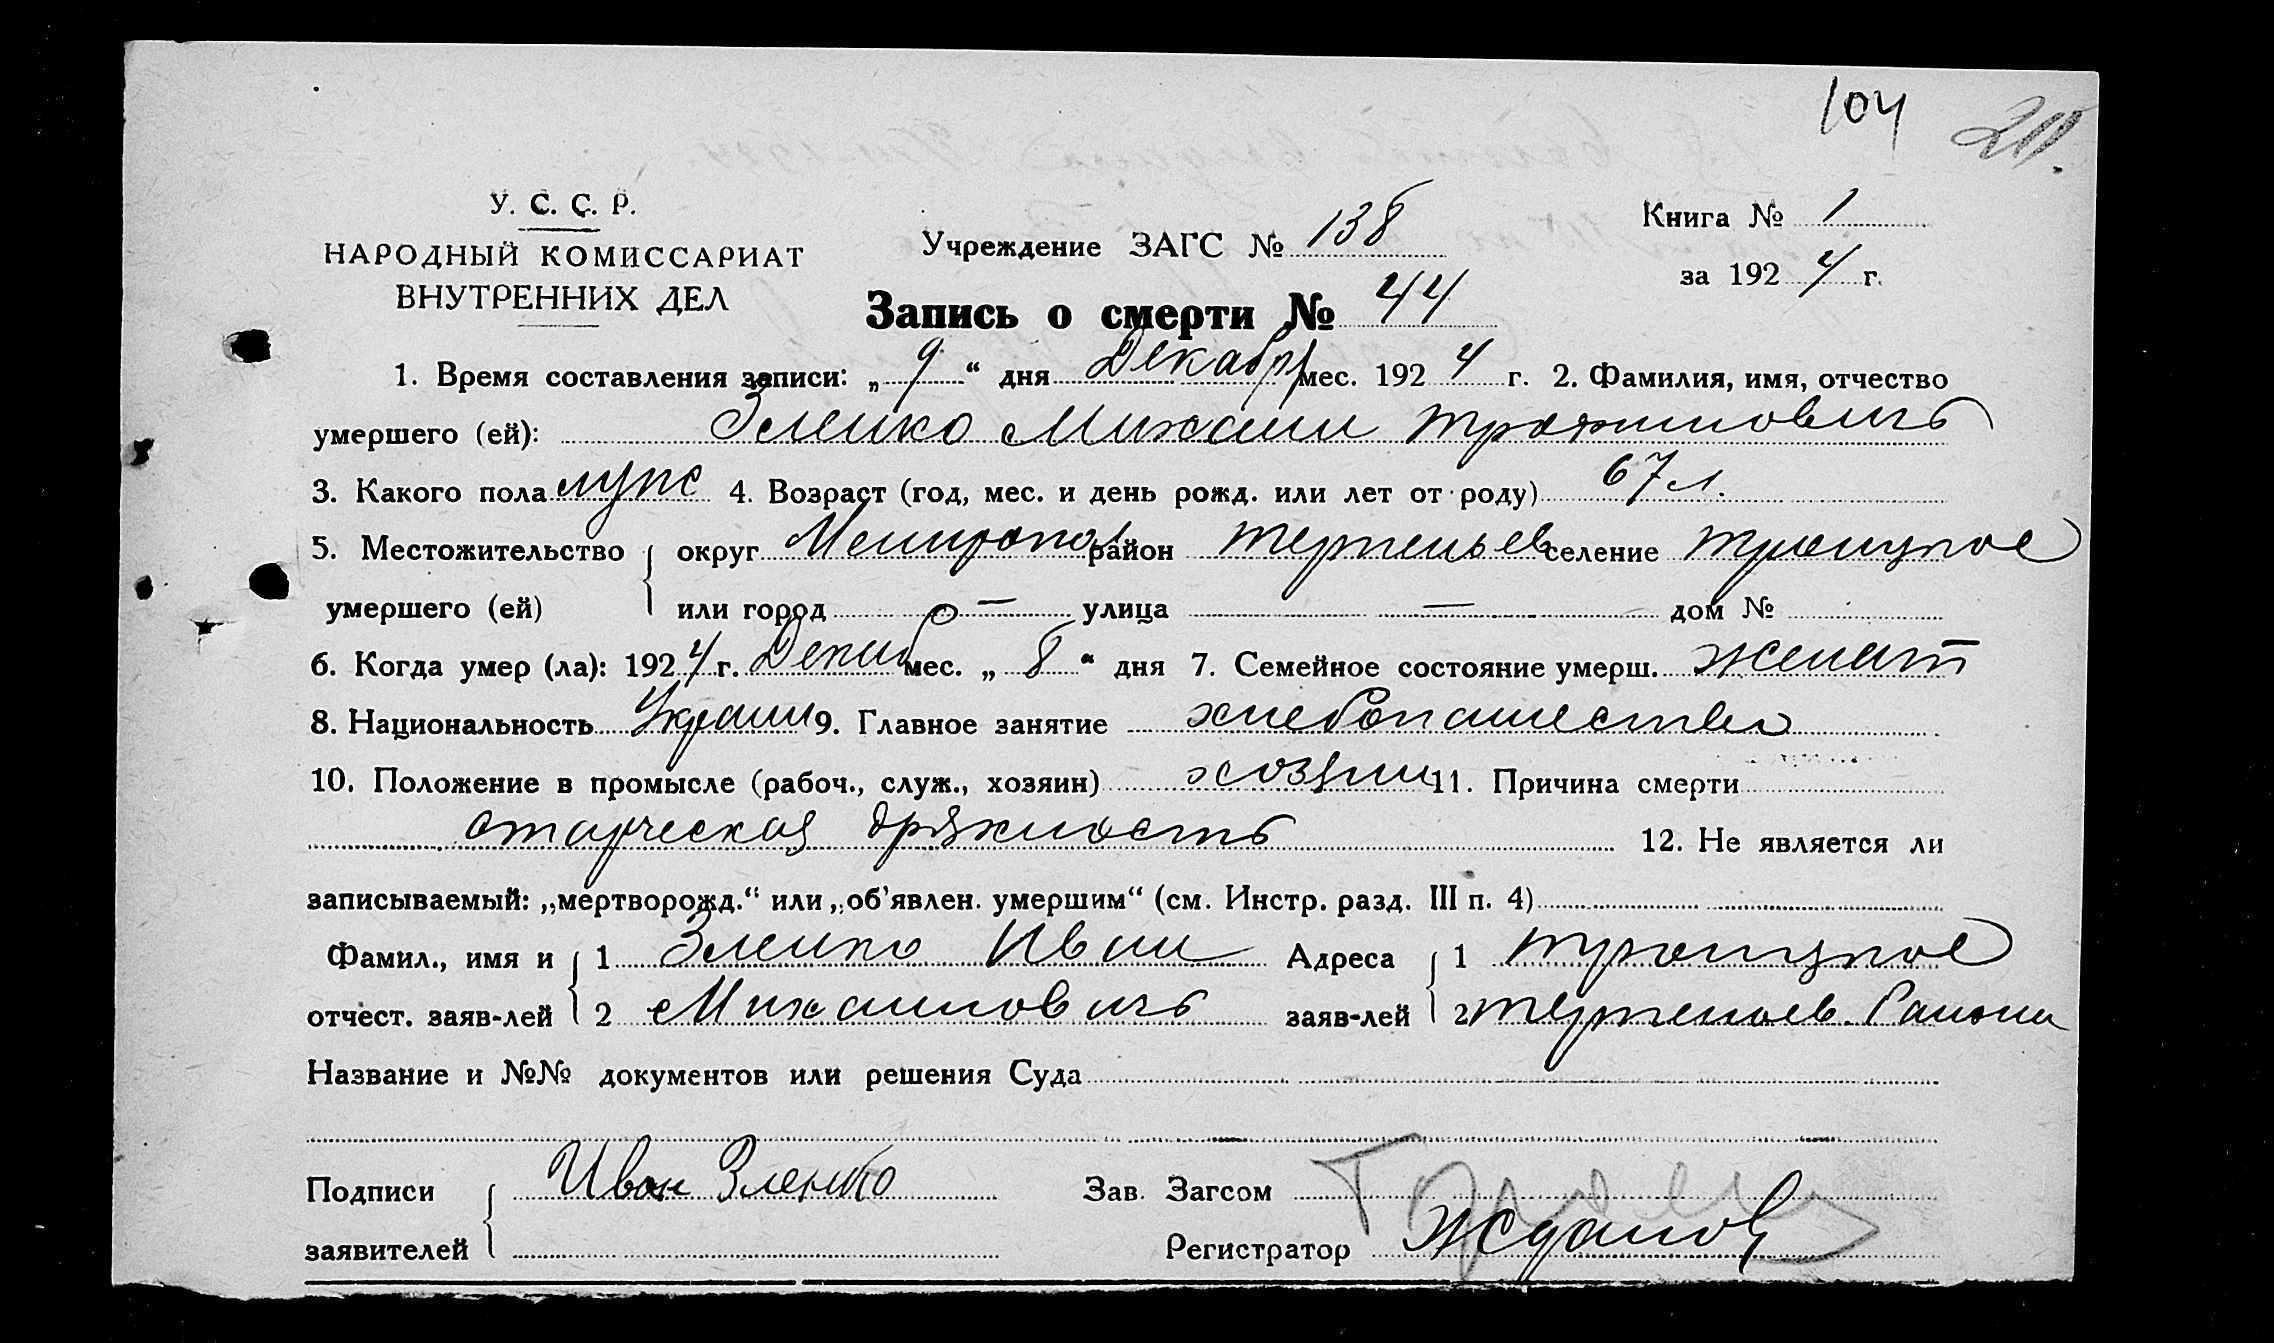 104 211.
У. С. С. Р.
НАРОДНЫЙ КОМИССАРИАТ
ВНУТРЕННИХ ДЕЛ
Учреждение ЗАГС № 138
Книга № 1
за 1924 г.
Запись о смерти № 44
1. Время составления записи: „9“ дня Декабр мес. 1924 г. 2. Фамилия, имя, отчество
умершего (ей): Зленко Михаил Трофимовичъ
3. Какого пола муж 4. Возраст (год, мес. и день рожд. или лет от роду) 67 л.
5. Местожительство округ Мелитопол район Терпеньев селение Троицкое
умершего (ей) или город — улица — дом №
6. Когда умер (ла): 1924 г. Декаб мес. „8“ дня 7. Семейное состояние умерш. женат
8. Национальность Украин 9. Главное занятие хлебопашество
10. Положение в промысле (рабоч., служ., хозяин) хозяин 11. Причина смерти
старческая дряхлость 12. Не является ли
записываемый: „мертворожд.“ или „об'явлен. умершим“ (см. Инстр. разд. III п. 4)
Фамил., имя и 1 Зленко Иван Адреса 1 Троицкое
отчест. заяв-лей 2 Михаиловичъ заяв-лей 2 Терпеньев. Района
Название и №№ документов или решения Суда
Подписи Иван Зленко Зав. Загсом
заявителей Регистратор Жданов